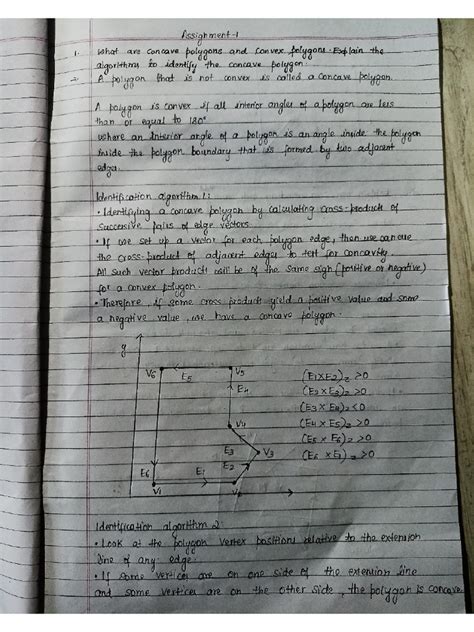 Assignment-1
1. What are concave polygons and convex polygons. Explain the
algorithms to identify the concave polygon.
A polygon that is not convex is called a concave polygon.
A polygon is convex if all interior angles of a polygon are less
than or equal to 180°
where an interior angle of a polygon is an angle inside the polygon
inside the polygon boundary that is formed by two adjacent
edges.
Identification algorithm 1:
• Identifying a concave polygon by calculating cross-products of
successive pairs of edge vectors.
• If we set up a vector for each polygon edge, then use can use
the cross-product of adjacent edges to test for concavity.
All such vector products will be of the same sign (positive or negative)
for a convex polygon.
• Therefore, if some cross products yield a positive value and some
a negative value, we have a concave polygon.
y
V6
E5
V5
E4
V4
E3
V3
E2
E6
E1
V1
V
(E1×E2)z >0
(E2×E3)z >0
(E3×E4)z <0
(E4×E5)z >0
(E5×E6)z >0
(E6×E1)z >0
Identification algorithm 2:
• Look at the polygon vertex positions relative to the extension
line of any edge.
• If some vertices are on one side of the extension line
and some vertices are on the other side, the polygon is concave